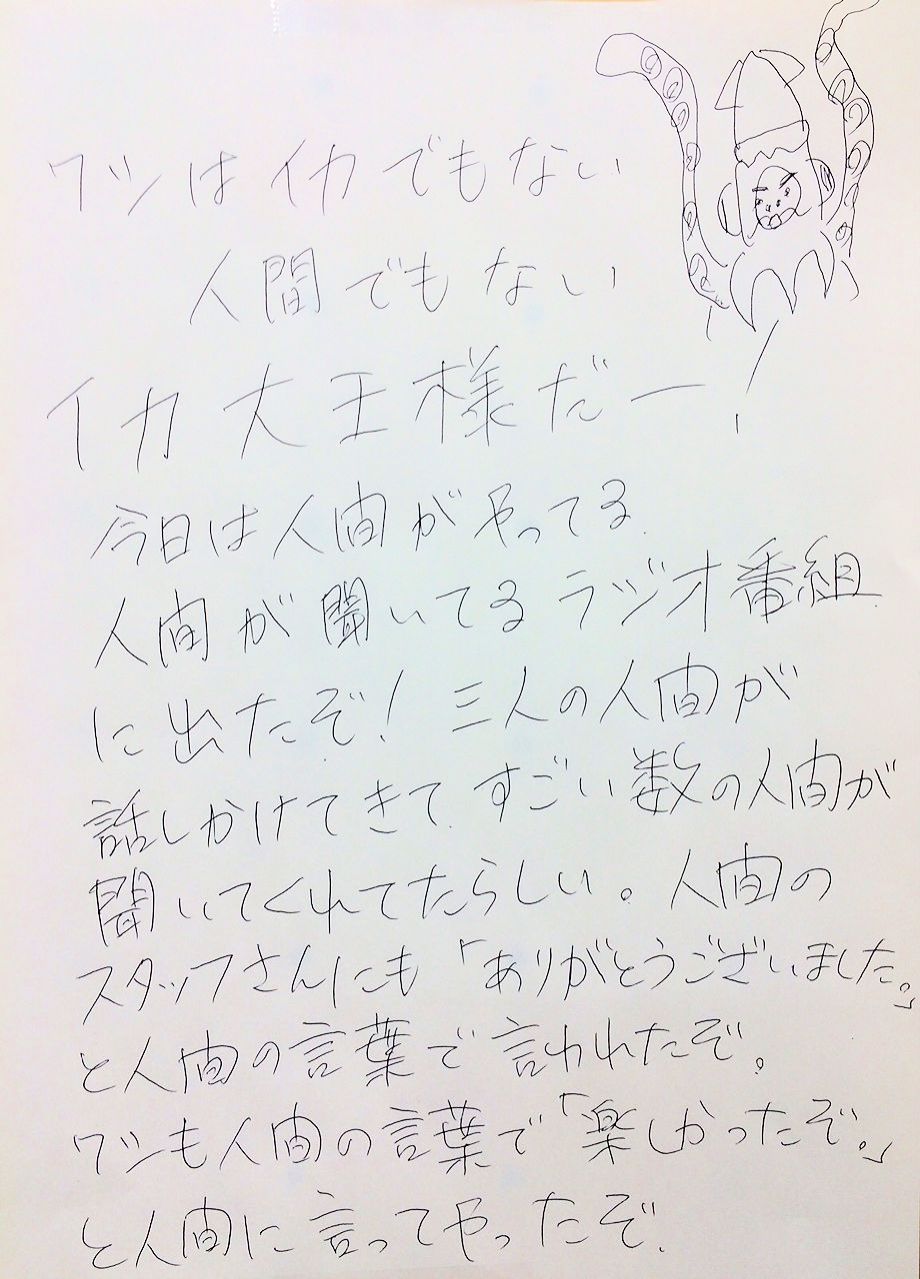 ワシはイカでもない
人間でもない
イカ大王様だー!
今日は人間がやってる
人間が聞いてるラジオ番組
に出たぞ!三人の人間が
話しかけてきて、すごい数の人間が
聞いてくれてたらしい。人間の
スタッフさんにも「ありがとうございました。」
と人間の言葉で言われたぞ。
ワシも人間の言葉で「楽しかったぞ。」
と人間に言ってやったぞ。